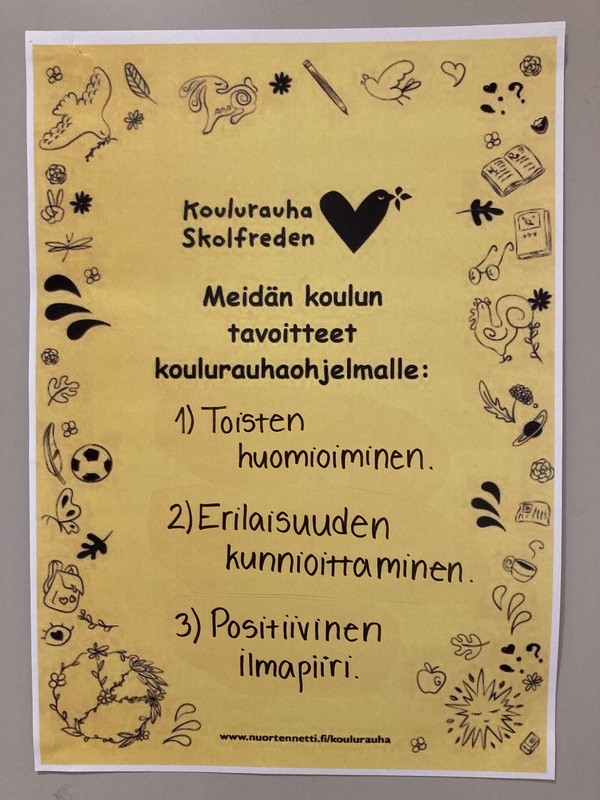 Koulurauha
Skolfreden
Meidän koulun
tavoitteet
koulurauhaohjelmalle:
1) Toisten
huomioiminen.
2) Erilaisuuden
kunnioittaminen.
3) Positiivinen
ilmapiiri.
www.nuortennetti.fi/koulurauha